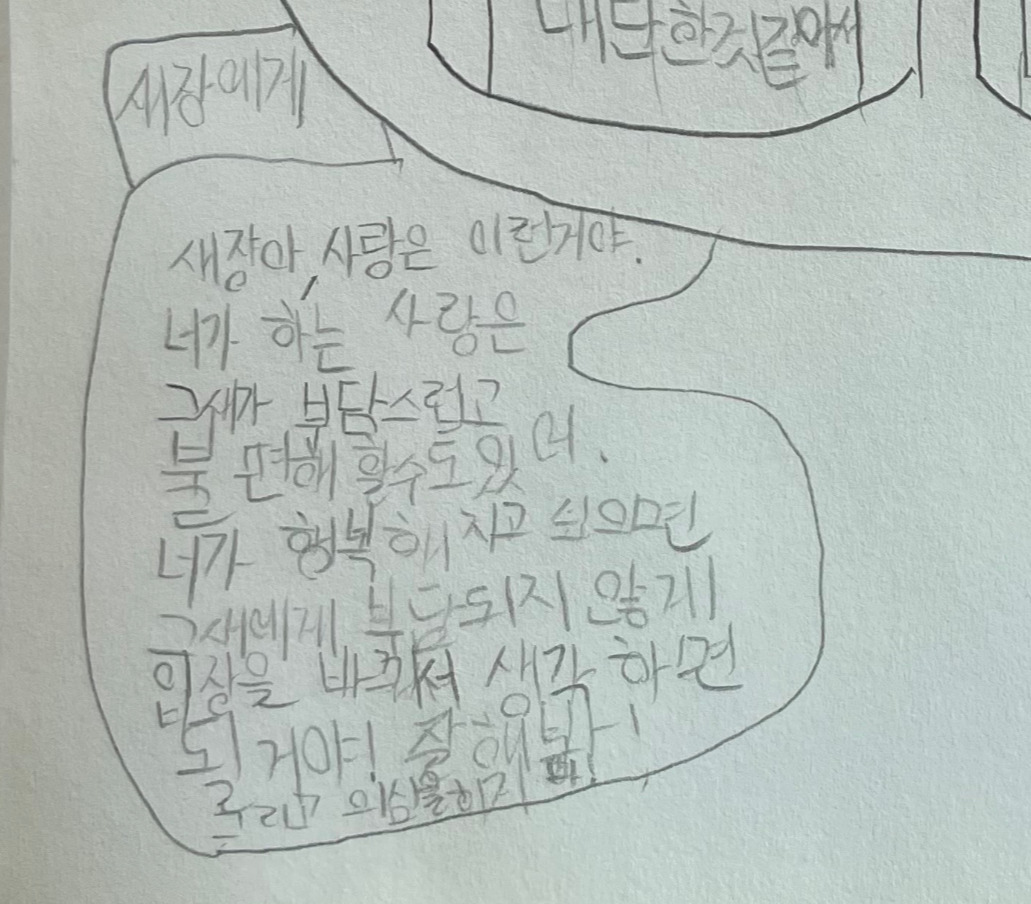 대단한것같아서
새장에게
새장아, 사랑은 이런거야.
너가 하는 사랑은
그새가 부담스럽고
불편해 할수도있어.
너가 행복해지고 싶으면
그새에게 부담되지 않게
입장을 바꿔서 생각 하면
될거야! 잘해봐!
의심을하지 마!